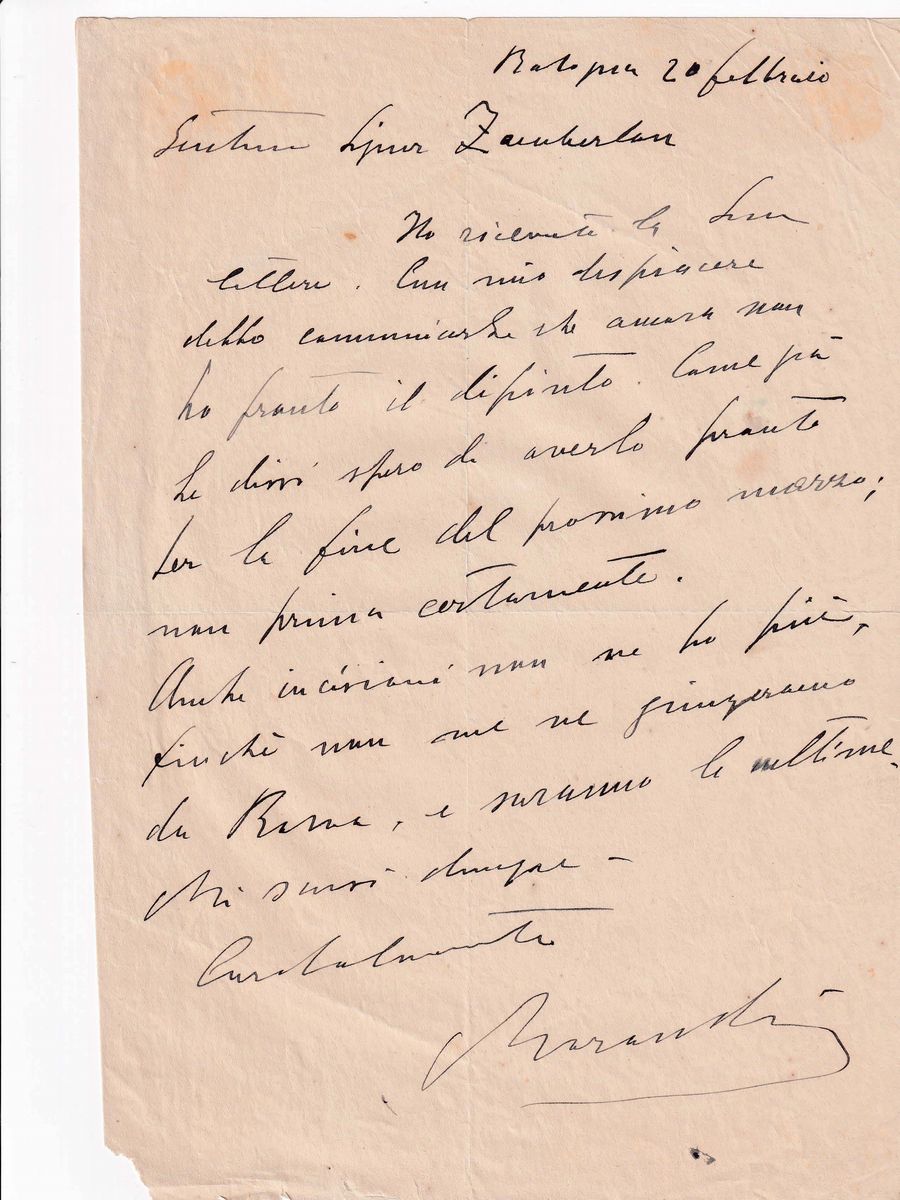 Bologna 20 febbraio
Gentmo Signor Zamberlan
Ho ricevuto la Sua
lettera. Con mio dispiacere
debbo comunicarLe che ancora non
ho pronto il dipinto. Come già
Le dissi spero di averlo pronto
per la fine del prossimo marzo;
non prima certamente.
Anche incisioni non ne ho più,
finché non me ne giungeranno
da Roma, e saranno le ultime.
Mi scusi dunque –
Cordialmente
Morandi